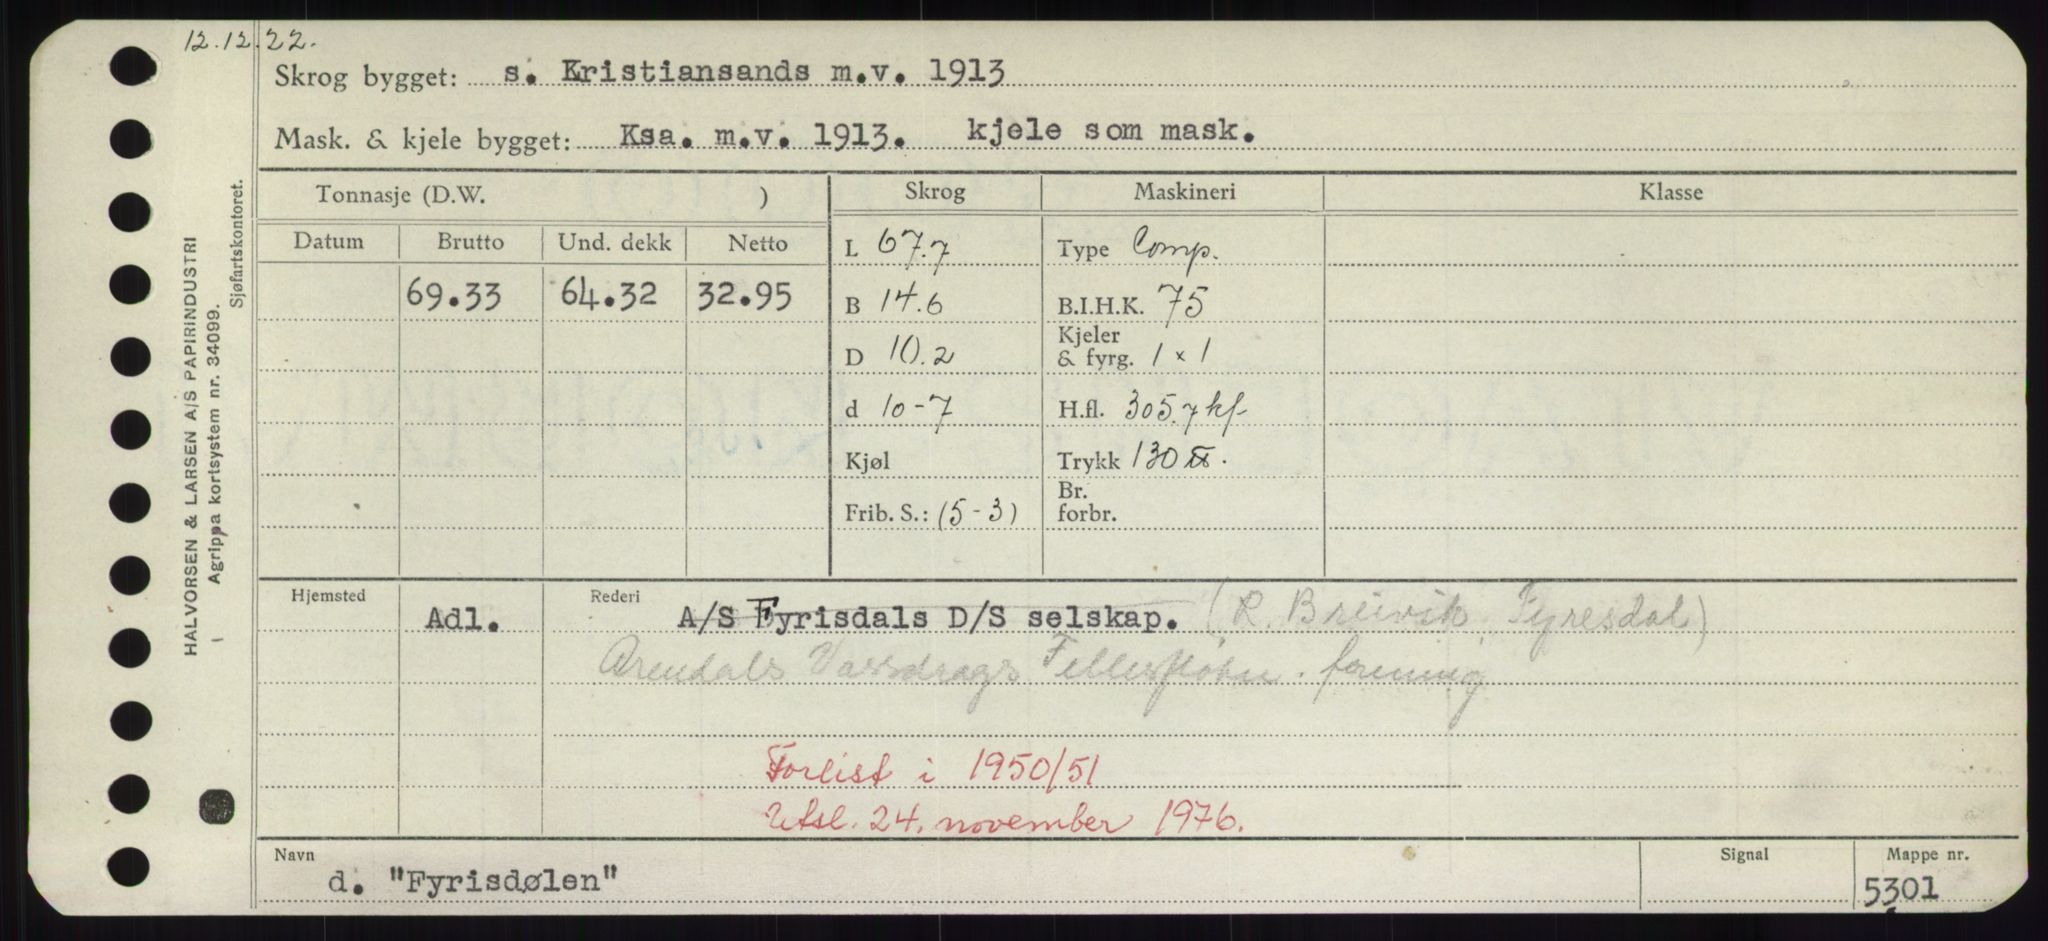 12.12.22.
Skrog bygget: s. Kristiansands m.v. 1913
Mask. & kjele bygget: Ksa. m.v. 1913. kjele som mask.
Tonnasje (D.W. ) Skrog Maskineri Klasse
Datum Brutto Und. dekk Netto L 67.7 Type Comp.
69.33 64.32 32.95 B 14.6 B.I.H.K. 75
Kjeler
D 10.2 & fyrg. 1 × 1
d 10-7 H.fl. 305.7 kf
Kjøl Trykk 130 ℔.
Br.
Frib. S.: (5-3) forbr.
Hjemsted Adl. Rederi A/S Fyrisdals D/S selskap. (R. Breivik Fyresdal)
Arendals Vassdrags Fellesfløtn. forening
Forlist i 1950/51
Utsl. 24. november 1976.
Navn Signal Mappe nr.
d. "Fyrisdølen" 5301
HALVORSEN & LARSEN A/S PAPIRINDUSTRI
Agrippa kortsystem nr. 34099.
Sjøfartskontoret.